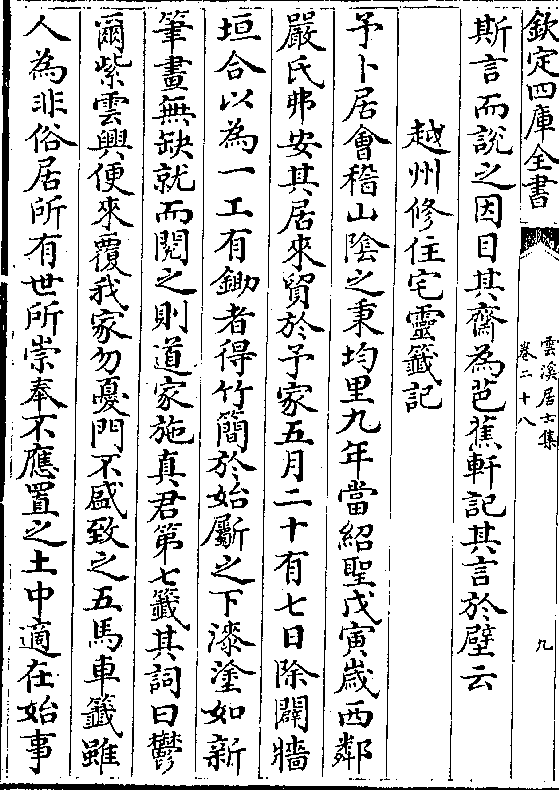 欽定四庫全書
雲溪居士集
卷二十八
九
斯言而說之因目其齋為芭蕉軒記其言於壁云
越州修住宅靈籤記
予卜居會稽山隂之秉均里九年當紹聖戊寅歲西鄰
嚴氏弗安其居來貿於予家五月二十有七日除闢牆
垣合以為一工有鋤者得竹簡於始斸之下漆塗如新
筆畫無缺就而閱之則道家施真君第七籤其詞曰鬱
爾紫雲興便來覆我家勿憂門不盛致之五馬車籤雖
人為非俗居所有世所崇奉不應置之土中適在始事